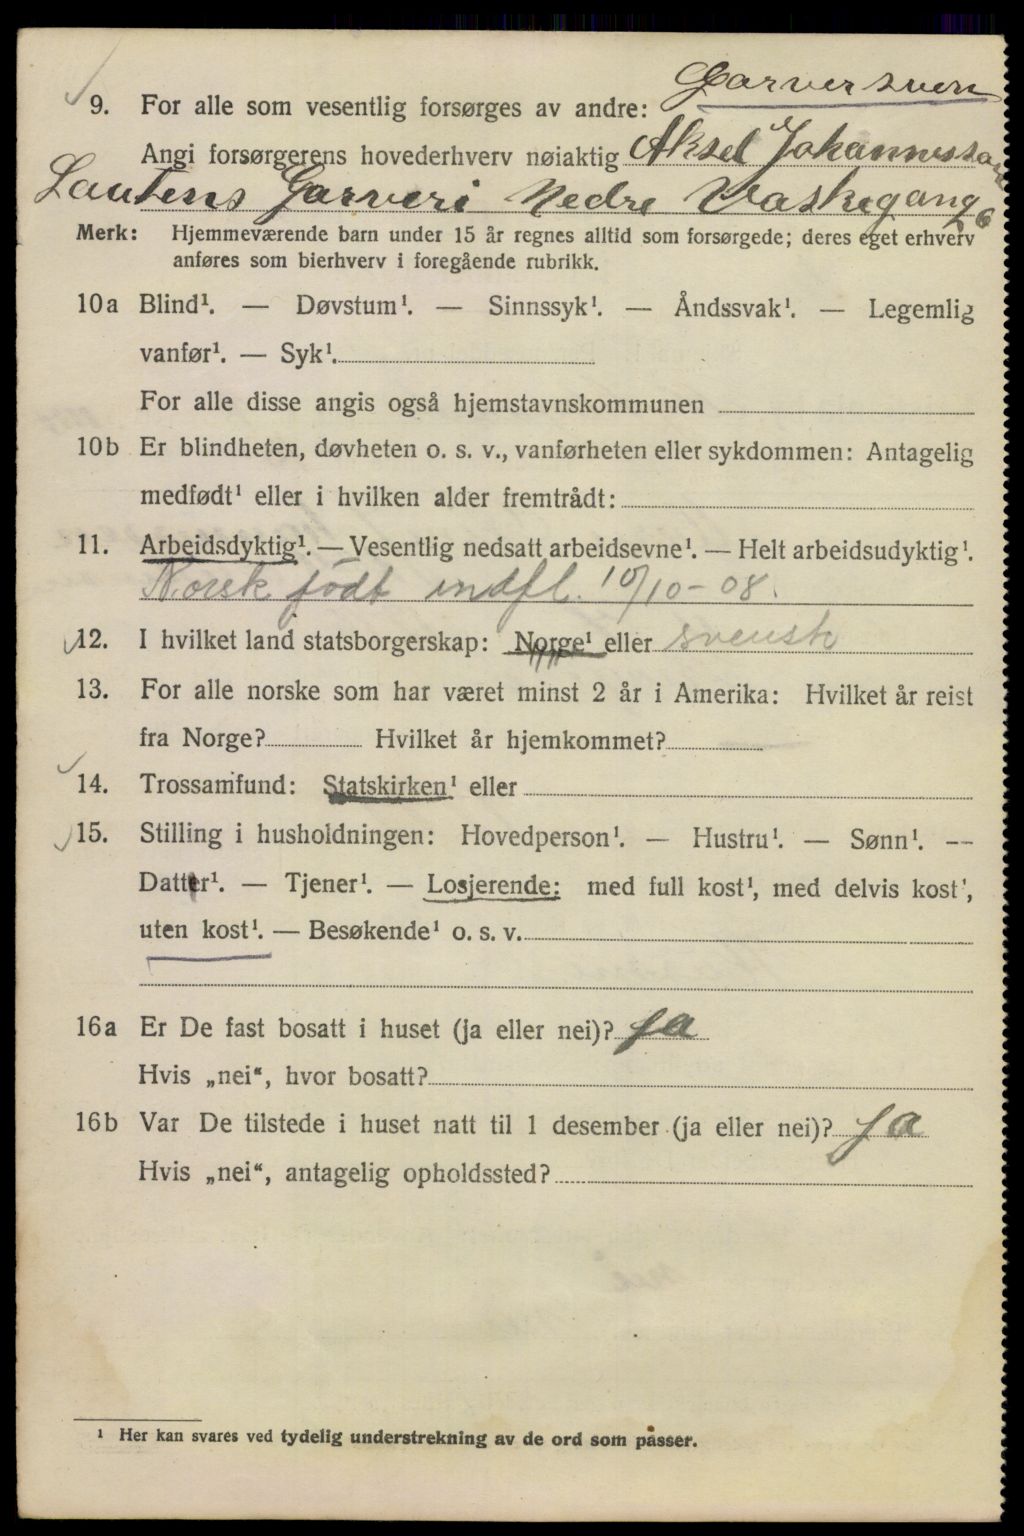 Garversven
9. For alle som vesentlig forsørges av andre:
Angi forsørgerens hovederhverv nøiaktig Aksel Johannessen
Lautens Garveri Nedre Vaskegang 6
Merk: Hjemmeværende barn under 15 år regnes alltid som forsørgede; deres eget erhverv
anføres som bierhverv i foregående rubrikk.
10a Blind¹. — Døvstum¹. — Sinnssyk¹. — Åndssvak¹. — Legemlig
vanfør¹. — Syk¹.
For alle disse angis også hjemstavnskommunen
10b Er blindheten, døvheten o. s. v., vanførheten eller sykdommen: Antagelig
medfødt¹ eller i hvilken alder fremtrådt:
11. Arbeidsdyktig¹. — Vesentlig nedsatt arbeidsevne¹. — Helt arbeidsudyktig¹.
Norsk födt indfl. 10/10-08.
12. I hvilket land statsborgerskap: Norge¹ eller svensk
13. For alle norske som har været minst 2 år i Amerika: Hvilket år reist
fra Norge? Hvilket år hjemkommet?
14. Trossamfund: Statskirken¹ eller
15. Stilling i husholdningen: Hovedperson¹. — Hustru¹. — Sønn¹. —
Datter¹. — Tjener¹. — Losjerende: med full kost¹, med delvis kost¹,
uten kost¹. — Besøkende¹ o. s. v.
16a Er De fast bosatt i huset (ja eller nei)? ja
Hvis „nei“, hvor bosatt?
16b Var De tilstede i huset natt til 1 desember (ja eller nei)? ja
Hvis „nei“, antagelig opholdssted?
¹ Her kan svares ved tydelig understrekning av de ord som passer.